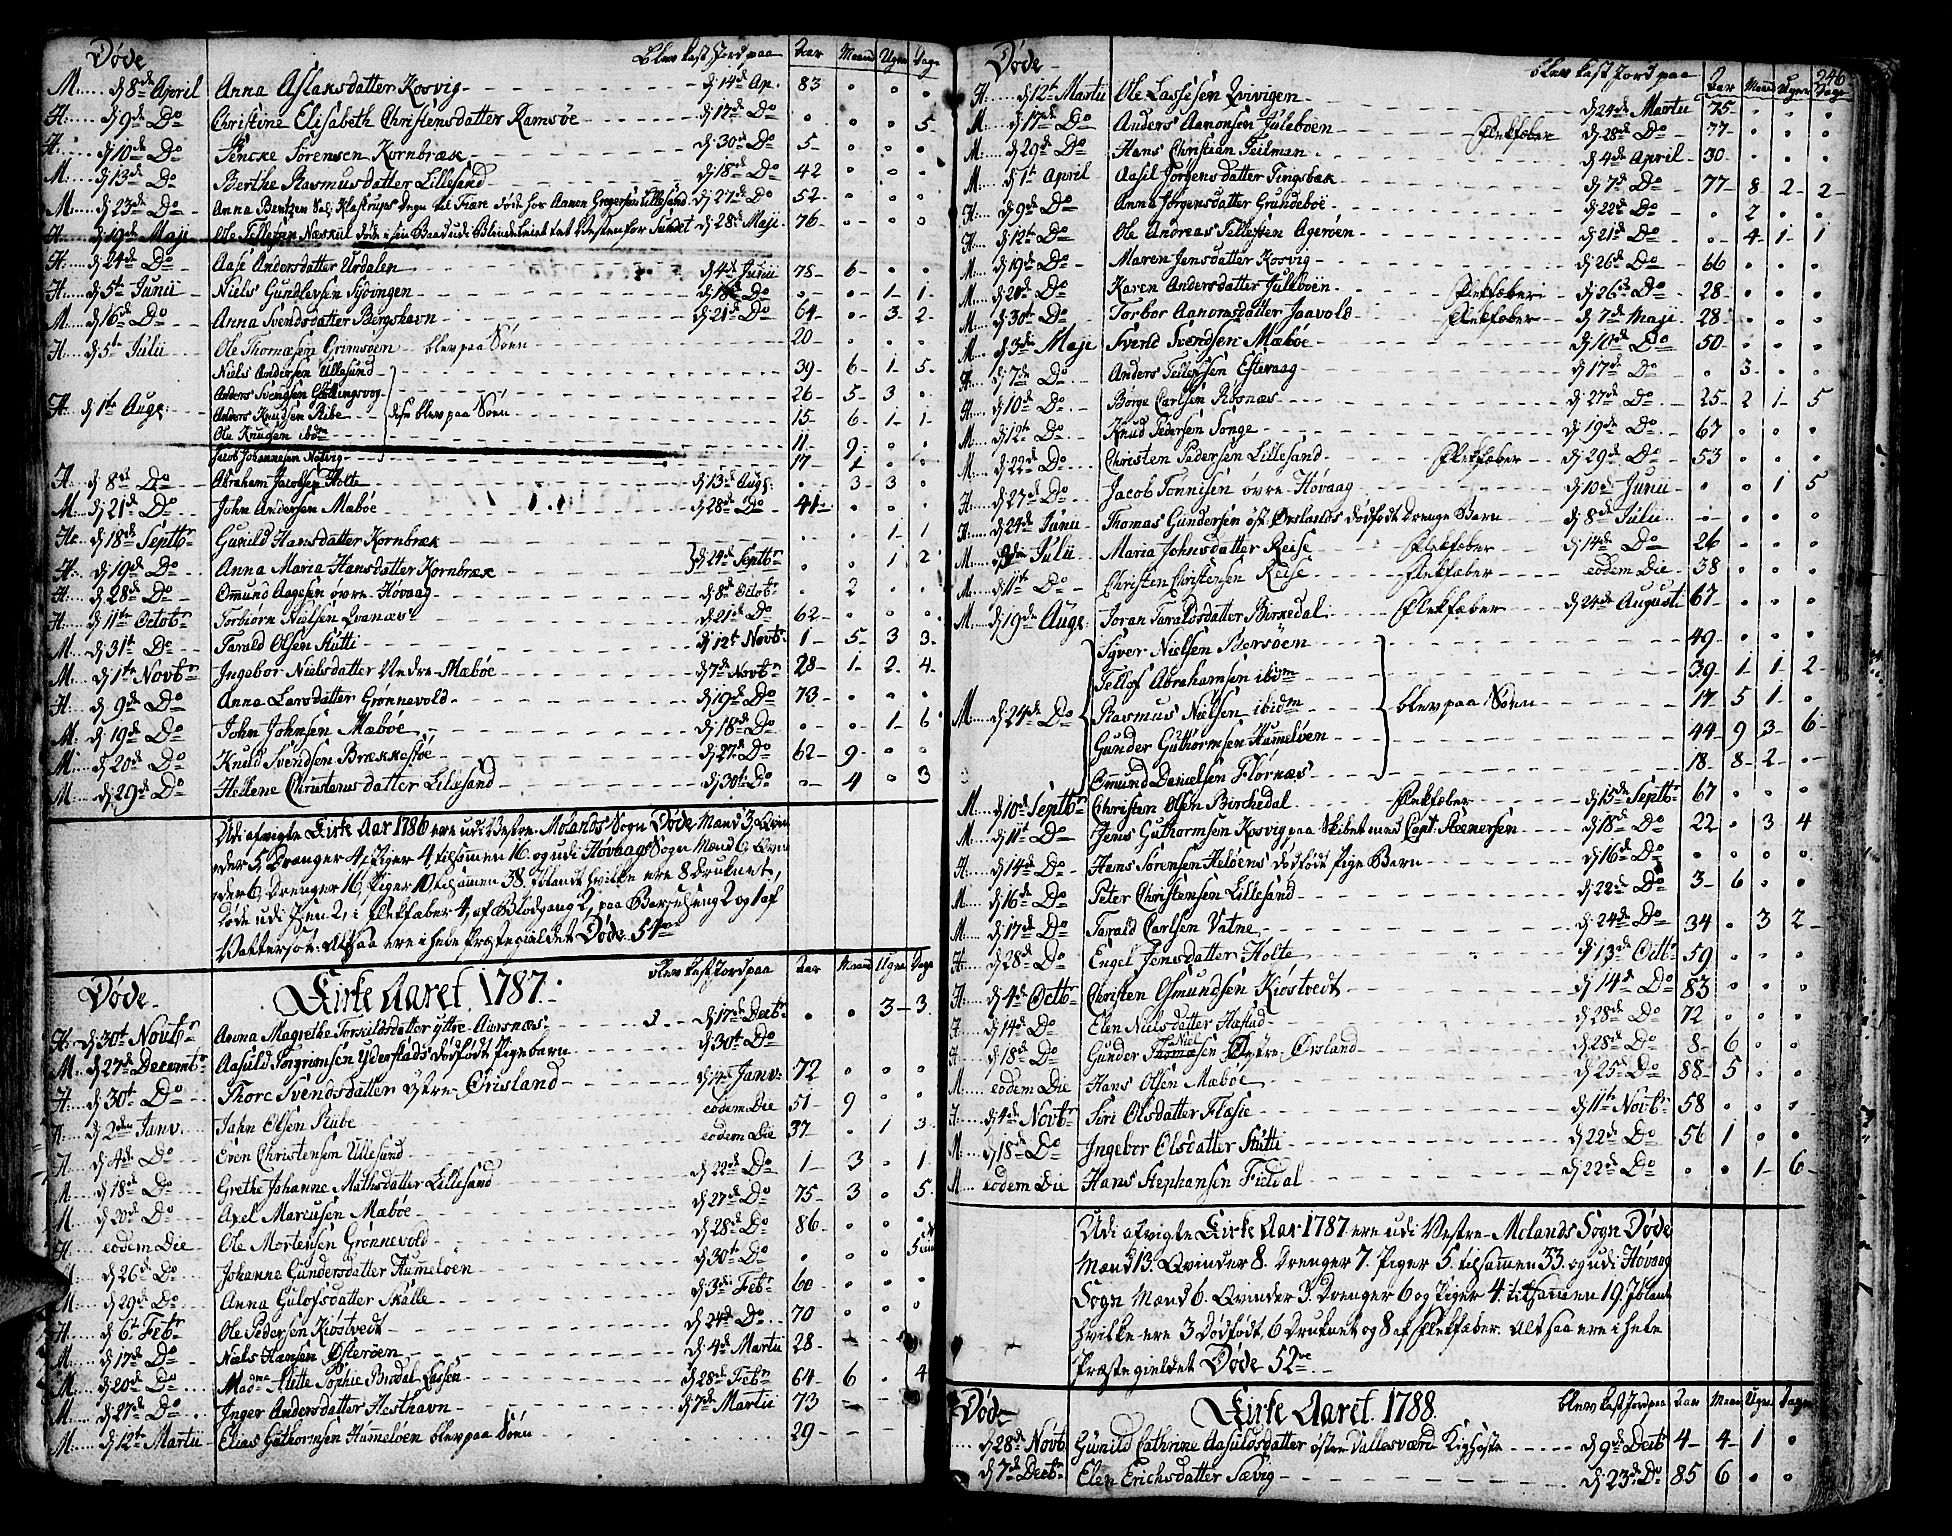 Døde blev kast Jord paa Aar Maan Ugne Dage
M. d 8de April Anna Aslaksdatter Kosvig d 14de Ap. 83 0 0 0
H. d 9de Do Christine Elisabeth Christensdatter Ramsøe d 17de Do 0 0 0 5
H. d 10de Do Jencke Sørensen Kornbræk d 30te Do 5 0 0 0
M. d 13de Do Berthe Rasmusdatter Lillesand d 18de Do 42 0 0 0
M. d 23de Do Anna Bentzen d 27de Do 52 0 0 0
H. d 19de Maji Ole Tellefsen Næskiil døde i sin Baad udi Blindleiet det Vesten for Sundet d 28de Maji 76 0 0 0
H. d 24de Do Aase Andersdatter Usdalen d 4de Junii 78 6 0 0
H. d 5te Junii Niels Gundersen d 18de Do 0 0 1 1
M. d 16de Do Anna Svendsdatter Bergshavn d 21de Do 64 0 3 2
H. d 5te Julii Ole Thomæsen Grimsøen blev paa Søen 20 0 0 0
Niels Andersen Ullesund 39 6 1 5
Anders Svendsen 26 5 3 0
H. d 1te Aug: Anders Knudsen Ribe disse blev paa Søen 15 6 1 1
Ole Knudsen ibdm 11 9 0 0
Jacob Johannesen 17 1 0 0
H. d 8de Do Abraham Jacobsen Holte d 13de Aug: 0 3 3 0
M. d 21de Do John Andersen Mæbøe d 28de Do 41 0 0 0
H. d 18de Septbr Gunild Hansdatter Kornbræk 0 0 1 1
H. d 19de Do Anna Maria Hansdatter Kornbræk d 24de Septbr 0 0 1 2
H. d 28de Do Omund Aagesen øvre Høvaag d 8de Octobr 0 2 0 0
H. d 11te Octobr Torbiørn Nielsen Qvanæs d 21de Do 62 0 0 0
M. d 31te Do Tarald Olsen Stutti d 12te Novbr 1 5 3 3
M. d 1te Novbr Ingebor Nielsdatter Nedre Mæbøe d 7de Novbr 28 1 2 4
H. d 9de Do Anna Larsdatter Grønnevold d 19de Do 73 0 0 0
M. d 19de Do John Johnsen Mæbøe d 18de Do 0 0 1 6
M. d 20de Do Knud Svendsen Brækkestøe d 27de Do 62 9 0 0
M. d 29de Do Hellene Christensdatter Lillesand d 30te Do 0 4 0 3
Udi afvigte Kirke Aar 1786 ere udi Vestre Molands Sogn Døde Mænd 3, Qvin
der 5, Drenger 4, Piger 4, tilsamen 16. og udi Høvaag Sogn Mænd 6, Qvin
der 6, Drenger 16, Piger 10, tilsamen 38. Iblandt hvilke ere 8 druknet,
Døde udi Søen 2, i Flekfæber 4, af Blodgang 2, paa Barselseng 2 og 1 af
Vattersot: Altsaa ere i hele Præstegieldet Døde 54re
Døde Kirke Aaret 1787. blev kast Jord paa Aar Maan Ugne Dage
H. d 30te Novbr Anna Magrethe Torkildsdatter yttre Aarsnæs d 17de Decbr 0 0 3 3
M. d 27de Decembr Aasuld Torgromsen Yderstads dødfødt Pigebarn d 30te Do
H. d 30te Do Thore Svendsdatter østre Ørisland d 1te Janv: 72 0 0 0
H. d 2den Janv. Jahn Olsen Stube eodem Die 51 9 0 0
H. d 4de Do Even Christensen Ullesund eodem Die 37 0 1 3
M. d 18de Do Grethe Johanne Mathisdatter Lillesand d 22de Do 1 3 0 1
M. d 20de Do Axel Marcusen Mæbøe d 27de Do 75 3 0 5
H. eodem Die Ole Mortensen Grønnevold d 28de Do 86 0 0 0
M. d 26de Do Johanne Gundersdatter Humeløen d 30te Do 0 0 0 5
M. d 29de Do Anna Gulofsdatter Skalle d 3de Febr 60 0 0 0
H. d 6te Febr Ole Pedersen Kiøstvedt d 24de Do 70 0 0 0
M. d 17de Do Niels Hansen Østerøen d 4de Martii 28
M. d 20de Do Madme Mette Sophie Brodal Lassen d 28de Febr 64 6 0 4
M. d 27de Do Inger Andersdatter Hesthavn d 7de Martii 73
M. d 12te Martii Elias Guthormsen Hummeløen blev paa Søen 29
246
Døde blev kast Jord paa Aar Maan Ugne Dage
H. d 12te Martii Ole Lassesen Qvivigen d 24de Martii 75 0 0 0
M. d 17de Do Anders Aanonsen Juleboen Flekfæber d 28de Do 77 0 0 0
M. d 29de Do Hans Christian Feilman d 4de April 30 0 0 0
M. d 1te April Aasil Jørgensdatter Tingsbæk d 7de Do 77 8 2 2
H. d 9de Do Anna Jørgensdatter Grundeboe d 22de Do 0 2 0 0
H. d 12te Do Ole Andreas Tellefsen Agerøen d 21de Do 0 4 1 1
M. d 19de Do Maren Jensdatter Kosvig d 26de Do 66 0 0 0
M. d 20de Do Karen Andersdatter Julebøen Flekfæber d 26de Do 28 0 0 0
M. d 30te Do Torbor Aanonsdatter Jaavold Flekfæber d 7de Maji 28 0 0 0
M. d 3de Maji Svend Svendsen Mæbøe d 10de Do 50 0 0 0
H. d 7de Do Anders Tellefsen Eftevaag d 17de Do 0 3 0 0
H. d 10de Do Borge Carlsen Rosnæs d 27de Do 25 2 1 5
M. d 12te Do Knud Pedersen Songe d 19de Do 67 0 0 0
M. d 22de Do Christen Pedersen Lillesand Flekfæber d 29de Do 53 0 0 0
H. d 27de Do Jacob Tønnisen øvre Høvaag d 10de Junii 0 0 1 5
H. d 24de Junii Thomas Gundersen øst Ørslands dødfødt Drenge Barn d 8de Julii 0 0 0
M. Julii Maria Johnsdatter Reise Flekfæber d 14de Do 26 0 0 0
M. d 11te Do Christen Christensen Reise Flekfæber eodem Die 38 0 0 0
M. d 19de Aug: Joran Taraldsdatter Birkedal Flekfæber d 24de Augusti 67 0 0 0
Syver Nielsen 49 0 0 0
Tellof Abrahamsen ibidm 39 1 1 2
M. d 24de Do Rasmus Nielsen ibidm blev paa Søen 17 5 1 0
Gunder Guthormsen Hummeløen 44 9 3 6
Omund Danielsen Flørnæs 18 8 2 0
M. d 10de Septbr Christen Olsen Birchedal Flekfæber d 15de Septbr 67 0 0 0
M. d 11te Do Jens Guthormsen Kosvig paa Skibet med Capt: Steenersen d 18de Do 22 0 3 4
H. d 14de Do Hans Sørensen Heløens dødfødt Pige Barn d 16de Do 0 0 0 0
M. d 16de Do Peter Christensen Lillesand d 22de Do 3 6 0 0
M. d 17de Do Tarald Carlsen Vatne d 24de Do 34 0 3 2
H. d 28de Do Engel Jensdatter Holte d 13de Octbr 59 0 0 0
H. d 4de Octbr Christen Osmundsen Kiøstvedt d 14de Do 83 0 0 0
H. d 14de Do Elen Nielsdatter Hæstad d 28de Do 72 0 0 0
H. d 18de Do Gunder Niel Thomæsen Østre Ørsland d 28de Do 8 6 0 0
M. eodem Die Hans Olsen Mæbøe d 25de Do 88 5 0 0
H. d 4de Novbr Siri Olsdatter Flæsie d 11te Novbr 58 0 0 0
M. d 18de Do Ingebor Olsdatter Stutti d 22de Do 56 1 0 0
M. eodem Die Hans Stephansen Fieldal d 22de Do 0 0 1 6
Udi afvigte Kirke Aar 1787 ere udi Vestre Molands Sogn Døde
Mænd 13. Qvinder 8. Drenger 7. Piger 5. tilsammen 33. og udi Høvaag
Sogn Mænd 6. Qvinder 3. Drenger 6 og Piger 4. tilsammen 19. Iblant
hvilke ere 3 Dødfødt, 6 Druknet og 8 af Flekfæber. Altsaa ere i hele
Præstegieldet Døde 52re
Døde Kirke Aaret 1788. blev kast Jord paa Aar Maan Ugne Dage
d 28de Novb Gunild Cathrine Aasuldsdatter østre Vallesværd Kighoste d 9de Decbr 4 4 1 0
d 7de Decbr Elen Erichsdatter Sævig d 23de Do 85 6 0 0